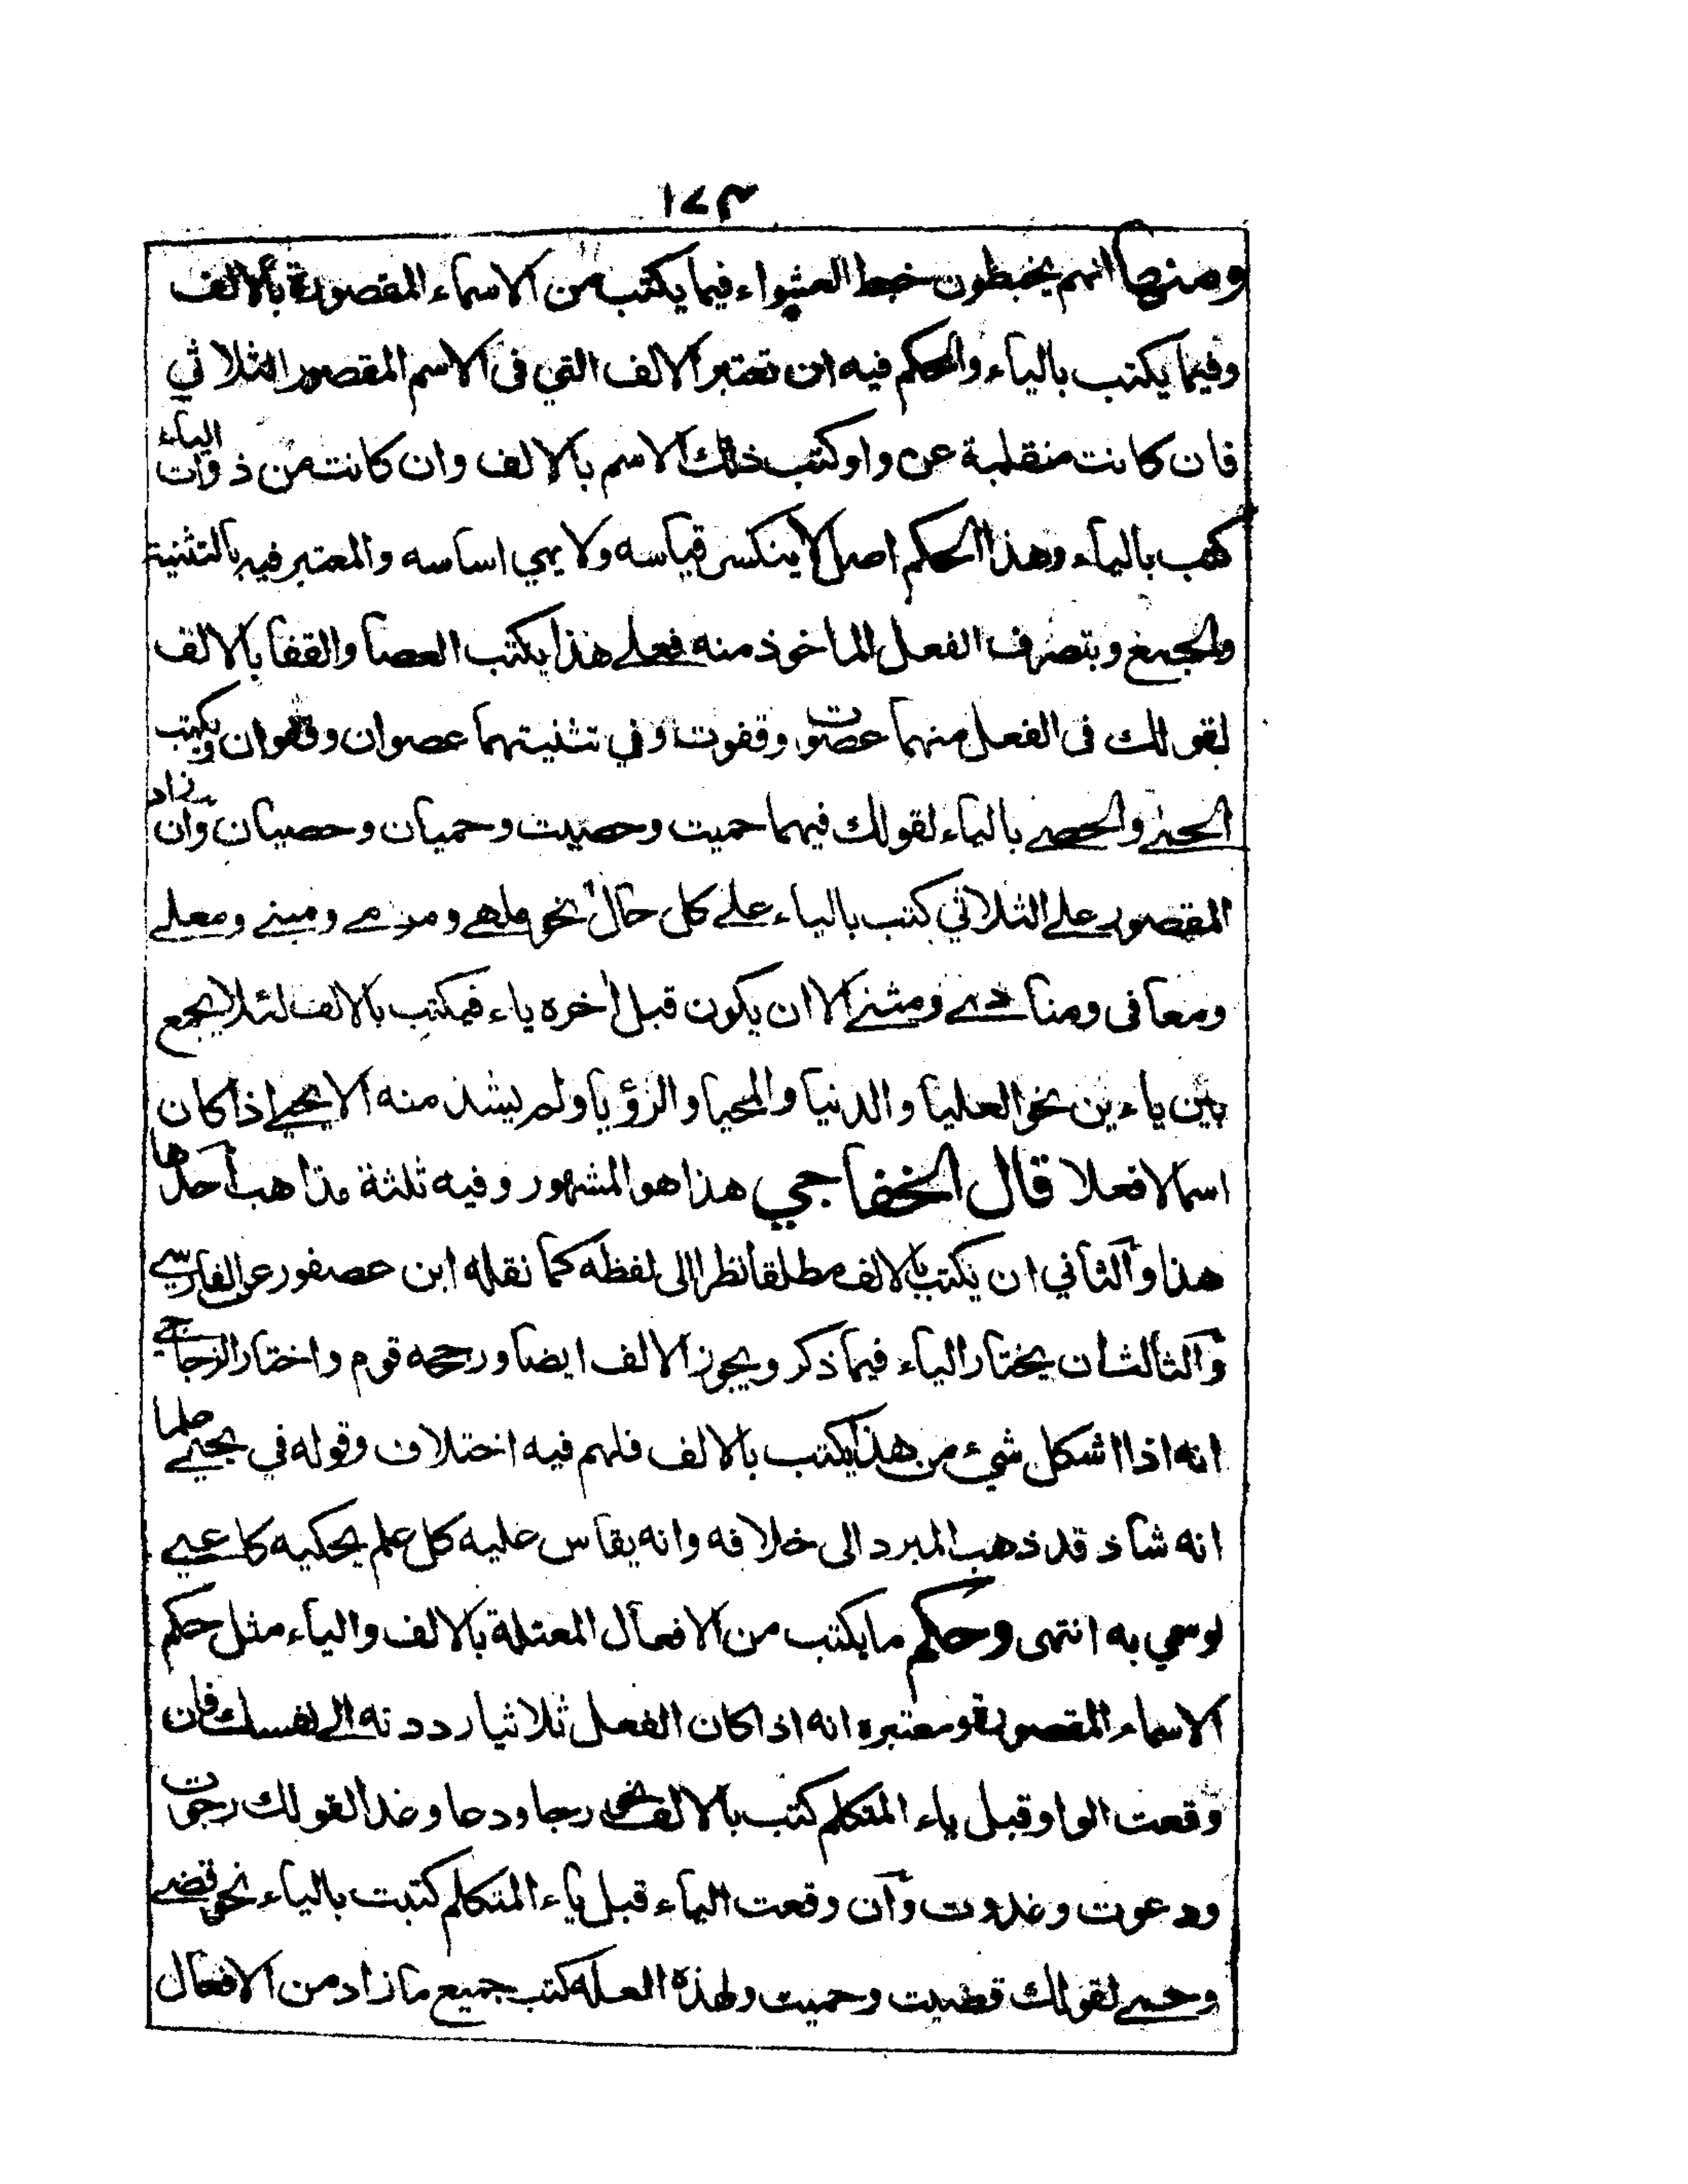 ١٧٣
ومنها انهم يخبطون خبط العشواء فيما يكتب من الاسماء المقصورة بالالف
وفيما يكتب بالياء والحكم فيه ان تعتبر الالف التي فى الاسم المقصور الثلاثي
فان كانت منقلبة عن واو كتب ذلك الاسم بالالف وان كانت من ذوات الياء
كتب بالياء وهذا الحكم اصل لا ينكسر قياسه ولا يهي اساسه والمعتبر فيه بالتثنية
والجمع وبتصرف الفعل الماخوذ منه فعلے هذا يكتب العصا والقفا بالالف
لقولك فى الفعل منهما عصوت وقفوت وفي تثنيتهما عصوان وقفوان ويكتب
الحمے والحصے بالياء لقولك فيهما حميت وحصيت وحميان وحصيان وان زاد
المقصور علے الثلاثي كتب بالياء علے كل حال نحو ملهے ومرمے ومبنے ومعلے
ومعافى ومنادے ومثنے الا ان يكون قبل اخره ياء فيكتب بالالف لئلا يجمع
بين ياءين نحو العليا والدنيا والمحيا والرؤيا ولم يشذ منه الا يحيے اذا كان
اسما لا فعلا قال الخفاجي هذا هو المشهور وفيه ثلثة مذاهب احدها
هذا والثاني ان يكتب بالالف مطلقا نظرا الى لفظه كما نقله ابن عصفور عن الفارسے
والثالث ان يختار الياء فيما ذكر ويجوز الالف ايضا ورجحه قوم واختار الزجاجے
انه اذا اشكل شيء من هذا يكتب بالالف فلهم فيه اختلاف وقوله في يحيے علما
انه شاذ قد ذهب المبرد الى خلافه وانه يقاس عليه كل علم يحكيه كاعيے
لو سمي به انتهى وحكم ما يكتب من الافعال المعتلة بالالف والياء مثل حكم
الاسماء المقصورة ومعتبره انه اذا كان الفعل ثلاثيا رددته الے نفسك فان
وقعت الواو قبل ياء المتكلم كتب بالالف نحو رجا ودعا وغدا لقولك رجوت
ودعوت وغدوت وان وقعت الياء قبل ياء المتكلم كتبت بالياء نحو قضے
وحمے لقولك قضيت وحميت ولهذه العله كتب جميع ما زاد من الافعال